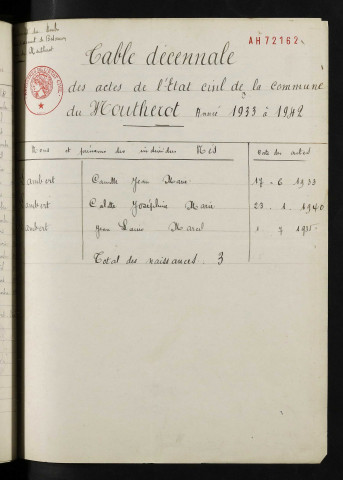 AH 72162
Table décennale
des actes de l'Etat civil de la Commune
du Moutherot Année 1933 à 1942
Noms et prénoms des individus Nés Date des actes
ambert Camille Jean Marie 17 - 6 1933
ambert Colette Joséphine Marie 23 - 1 1940
ambert Jean Louis Marcel 1 7 1935
Total des naissances. 3